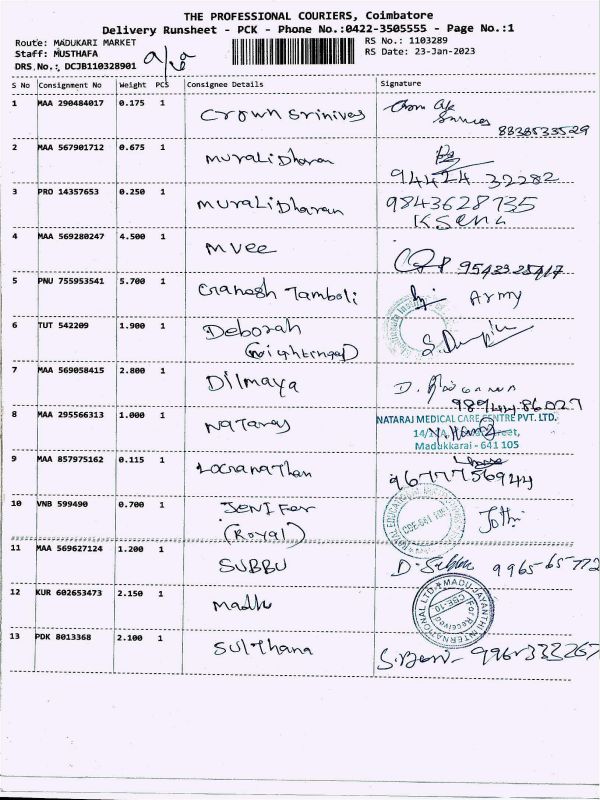 THE PROFESSIONAL COURIERS, Coimbatore
Delivery Runsheet - PCK - Phone No.:0422-3505555 - Page No.:1
Route: MADUKARI MARKET
RS No.: 1103289
Staff: MUSTHAFA
RS Date: 23-Jan-2023
DRS No.: DCJB110328901
S No Consignment No Weight PCS Consignee Details Signature
1 MAA 290484017 0.175 1 Crown Srinives
8838533529
2 MAA 567901712 0.675 1 Murali Dharan
94424 32282
3 PRO 14357653 0.250 1 Murali Dharan 9843628735
4 MAA 569280247 4.500 1 Mvee
5 PNU 755953541 5.700 1 Ganesh Tamboli Army
6 TUT 542209 1.900 1 Deborah
7 MAA 569058415 2.800 1 Dilmaya
98944 86027
8 MAA 295566313 1.000 1 Nataraj
NATARAJ MEDICAL CARE CENTRE PVT. LTD.
Street,
Madukkarai - 641 105
9 MAA 857975162 0.115 1 Loganathan
9677756944
10 VNB 599490 0.700 1 Jenifer Jothi
(Royal)
11 MAA 569627124 1.200 1 SUBBU D. Subbu 9965 65 772
12 KUR 602653473 2.150 1 Madhu
MADU JAYANTHI INTERNATIONAL LTD
For Received
CBE-10
13 PDK 8013368 2.100 1 Sulthana